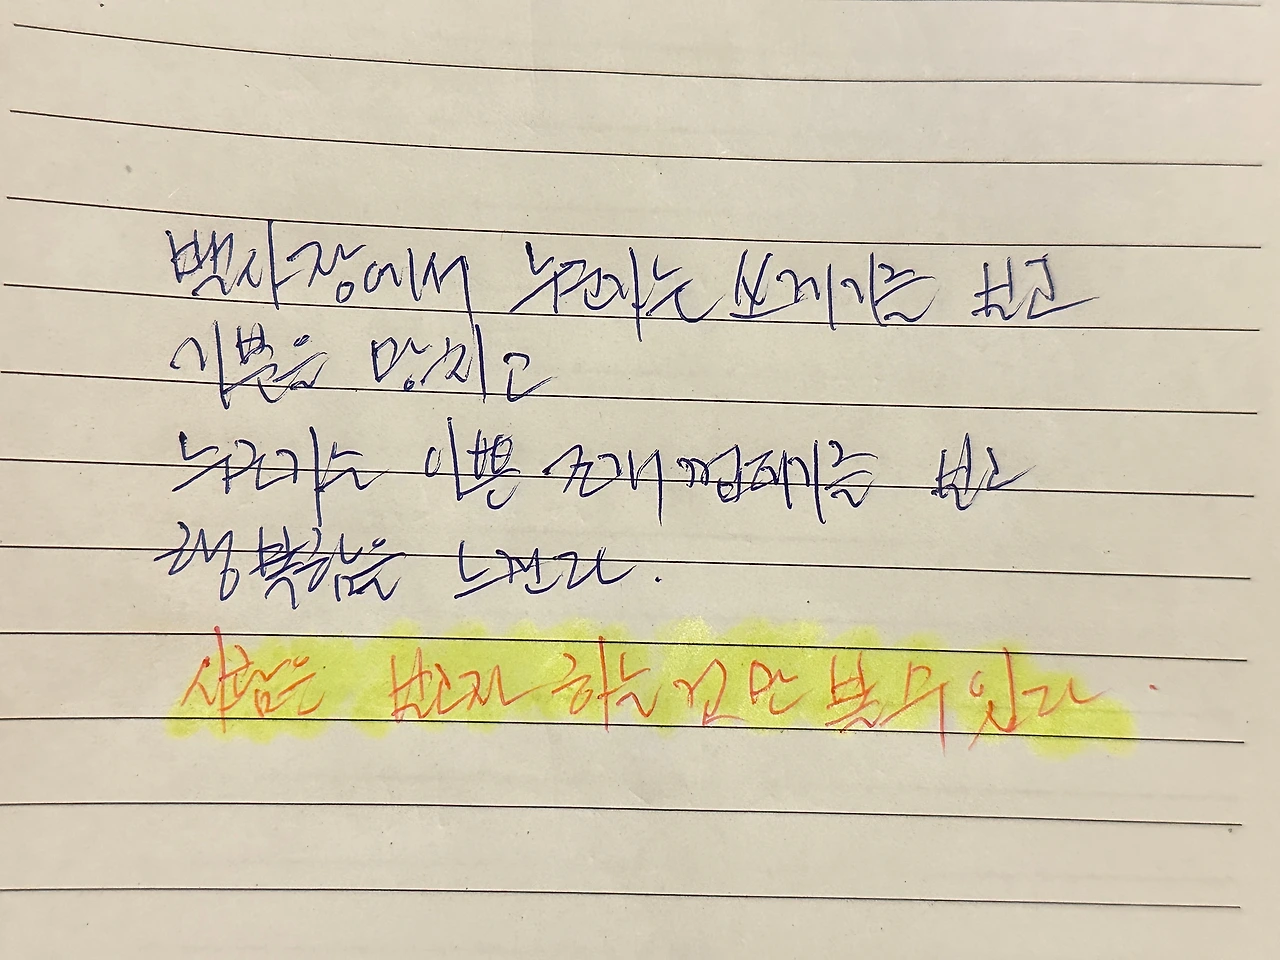 백사장에서 누군가는 쓰레기를 보고
기분을 망치고
누군가는 이쁜 조개껍데기를 보고
행복함을 느낀다.
사람은 보고자 하는 것만 볼 수 있다.